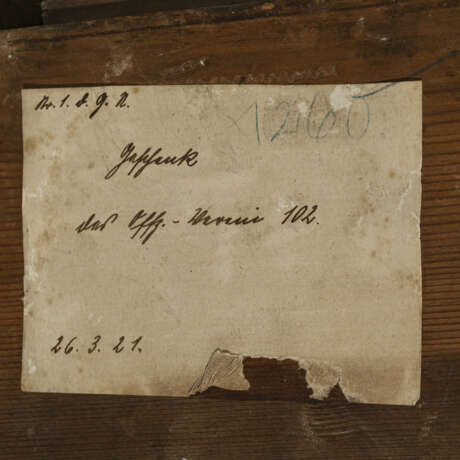 No. 1. d. G. N.
1260
Geschenk
des Offz.-Verein 102.
26. 3. 21.